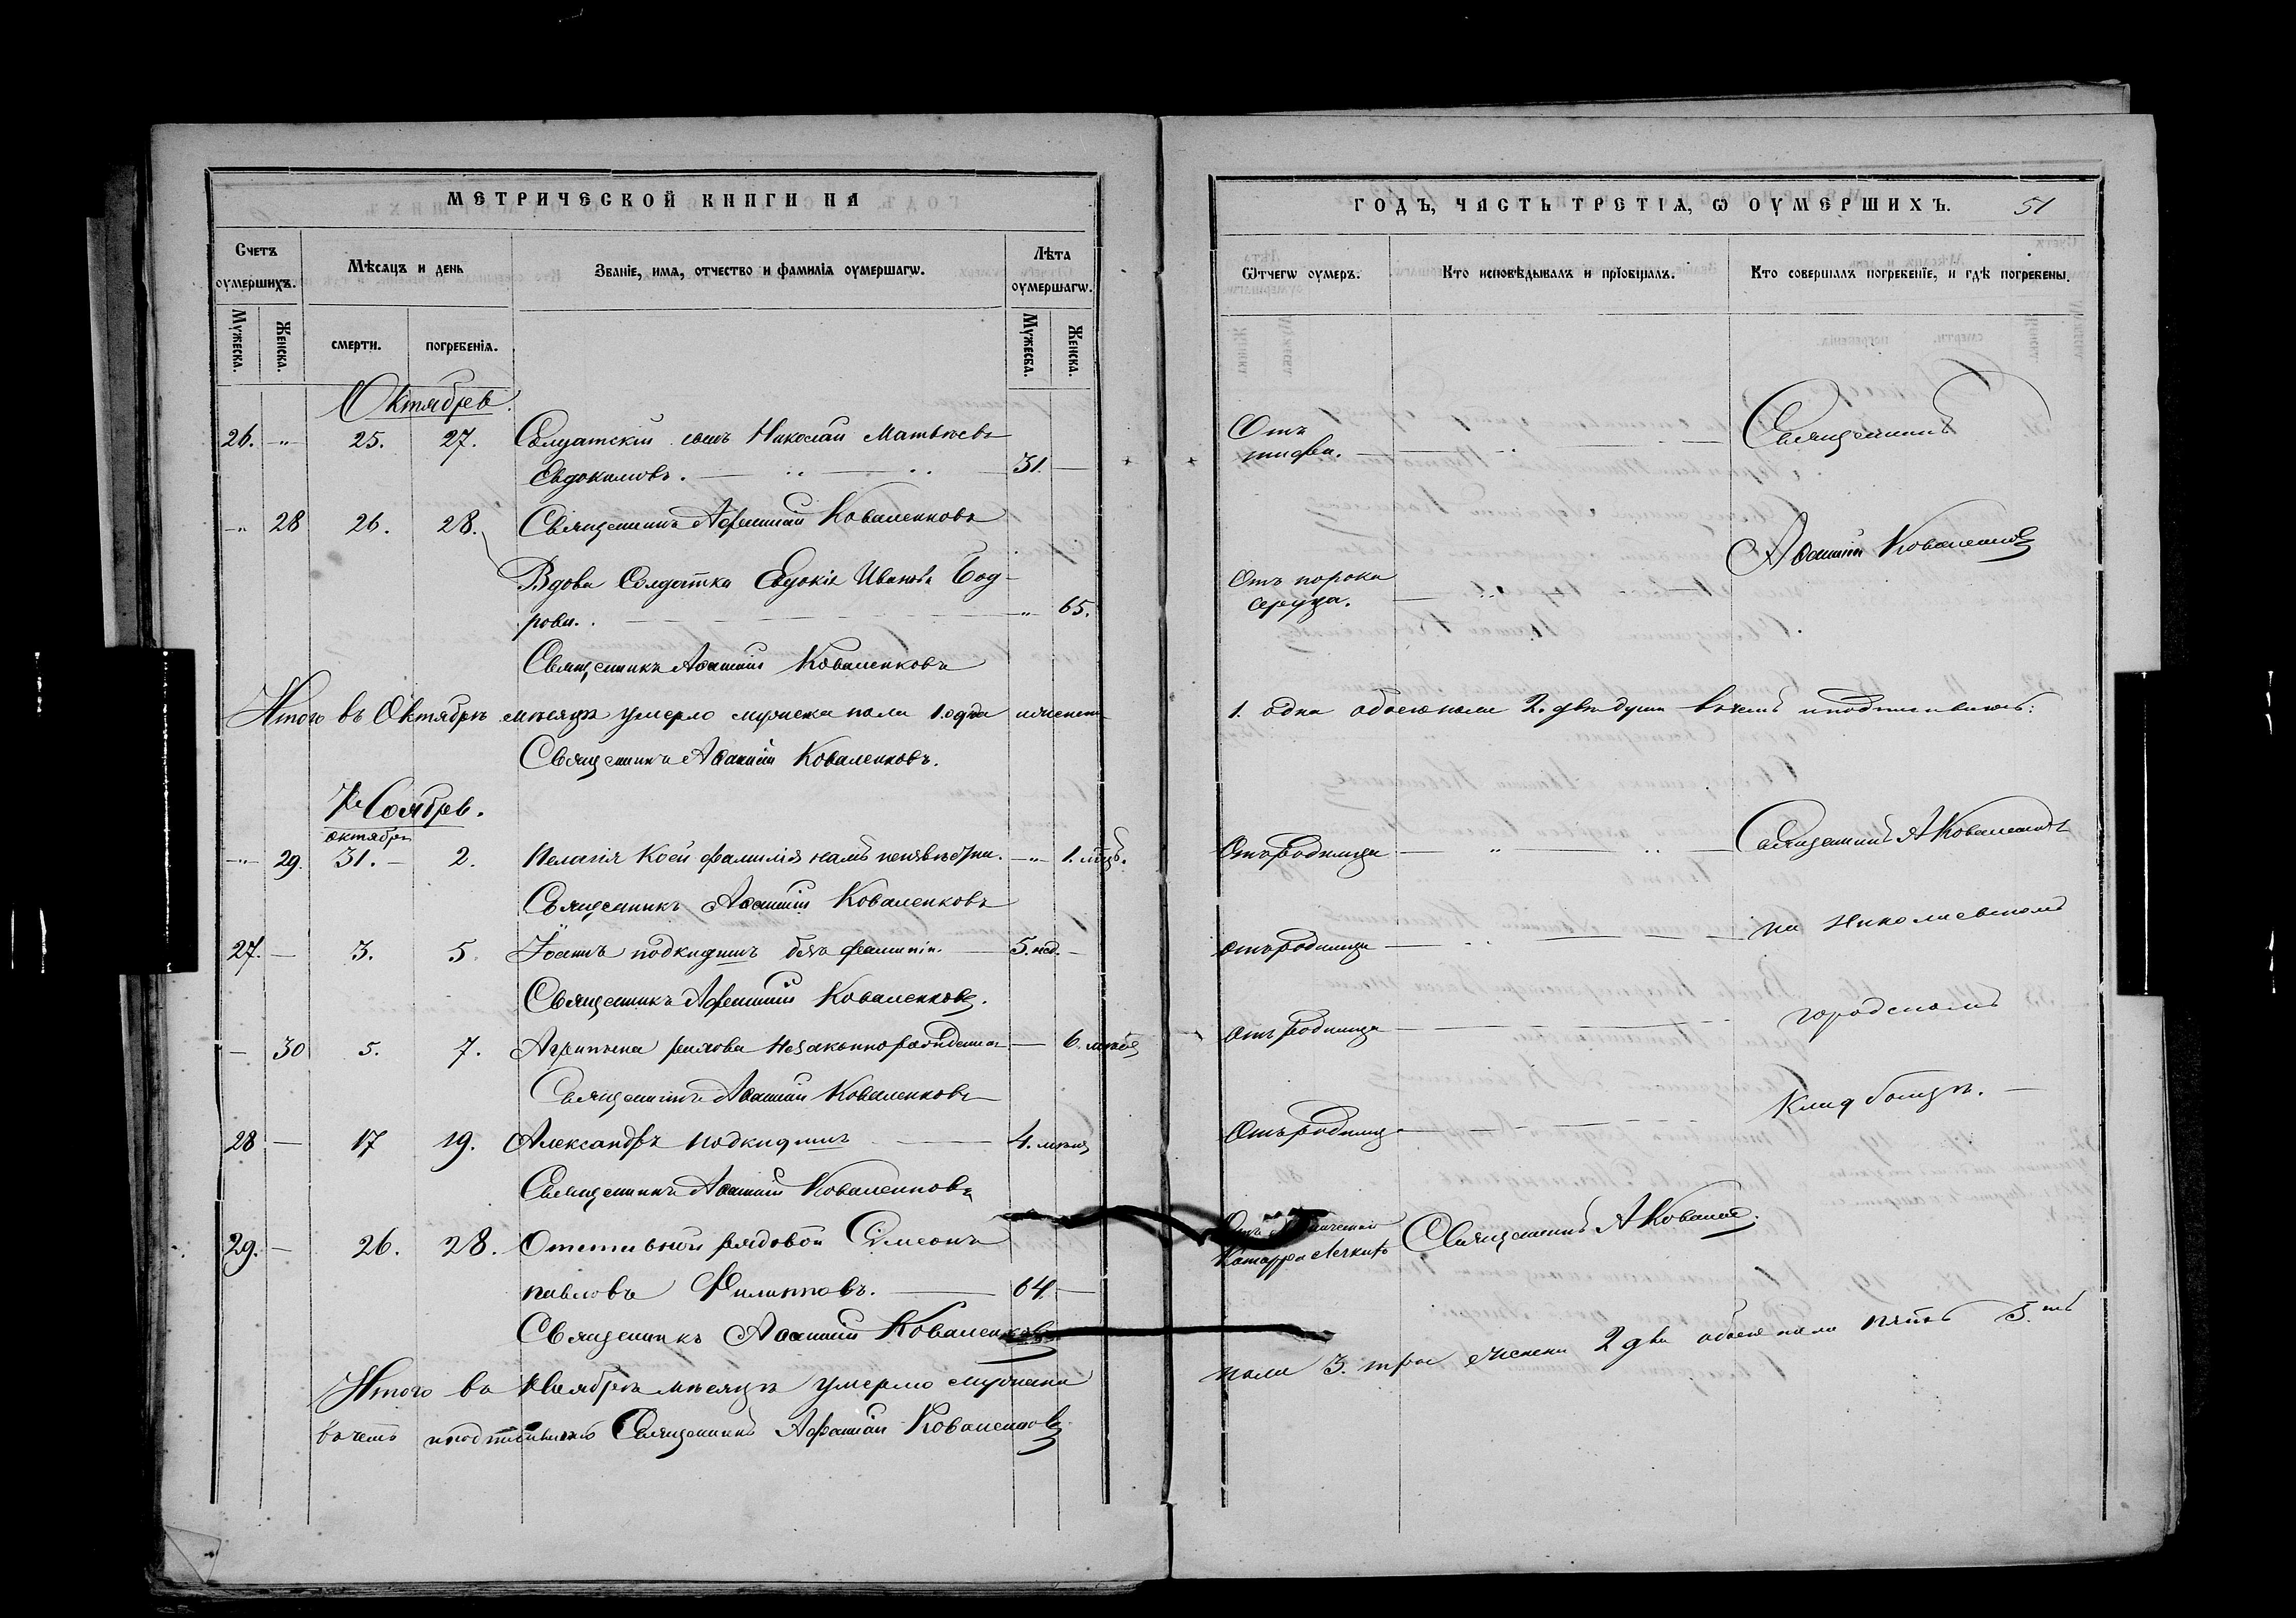 МЕТРИЧЕСКОЙ КНИГИ НА
Счетъ оумершихъ.
Мѣсяцъ и день
Званіе, имя, отчество и фамилія оумершагѡ.
Лѣта оумершагѡ.
Мужеска.
Женска.
смерти.
погребенія.
Мужеска.
Женска.
Октябрь.
26. -"- 25. 27. Солдатскій сынъ Николай Матвѣевъ
Евдокимовъ. 31. —
-"- 28 26. 28. Священникъ Афанасій Коваленковъ
Вдова Солдатка Евдокія Иванова Бод-
рова. -"- 65.
Священникъ Аѳанасій Коваленковъ
Итого въ Октябрѣ мѣсяцѣ умерло мужеска пола 1. одна и женска
Священникъ Аѳанасій Коваленковъ.
Ноябрь.
октября
-"- 29. 31. — 2. Пелагія коей фамилія намъ неизвѣстна. -"- 1. мцъ.
Священникъ Аѳанасій Коваленковъ
27. — 3. 5. Іоаннъ подкидышъ безъ фамиліи. — 5. нед. —
Священникъ Афанасій Коваленковъ.
— 30 5. 7. Агрипена незаконнорожденная — 6.
Священникъ Аѳанасій Коваленковъ
28 — 17 19. Александръ подкидышъ — 4.
Священникъ Аѳанасій Коваленковъ
29. — 26. 28. Отставной рядовой Сімеонъ
Павловъ Филипповъ. — 64. —
Священникъ Аѳанасій Коваленковъ
Итого въ Ноябрѣ мѣсяцѣ умерло мужеска
въ чемъ и подписываюсь Священникъ Афанасій Коваленковъ
ГОДЪ, ЧАСТЬ ТРЕТІЯ, Ѡ ОУМЕРШИХЪ. 51
Ѿчегѡ оумеръ.
Кто исповѣдывалъ и пріобщалъ.
Кто совершалъ погребеніе, и гдѣ погребены.
Отъ
тифа.
Священникъ
Аѳанасій Коваленковъ
Отъ порока
сердца.
1. одна обоего пола 2. двѣ души въ чемъ и подписываюсь:
Отъ родимца Священникъ А Коваленковъ
отъ родимца на Николаевскомъ
отъ родимца городскомъ
Отъ родимца кладбищѣ.
Отъ
Катарра легкихъ Священникъ А Ковален.
пола 3. три женска 2 два обоего пола пять 5.ть